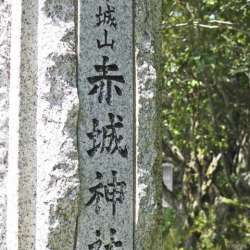 城山赤城神